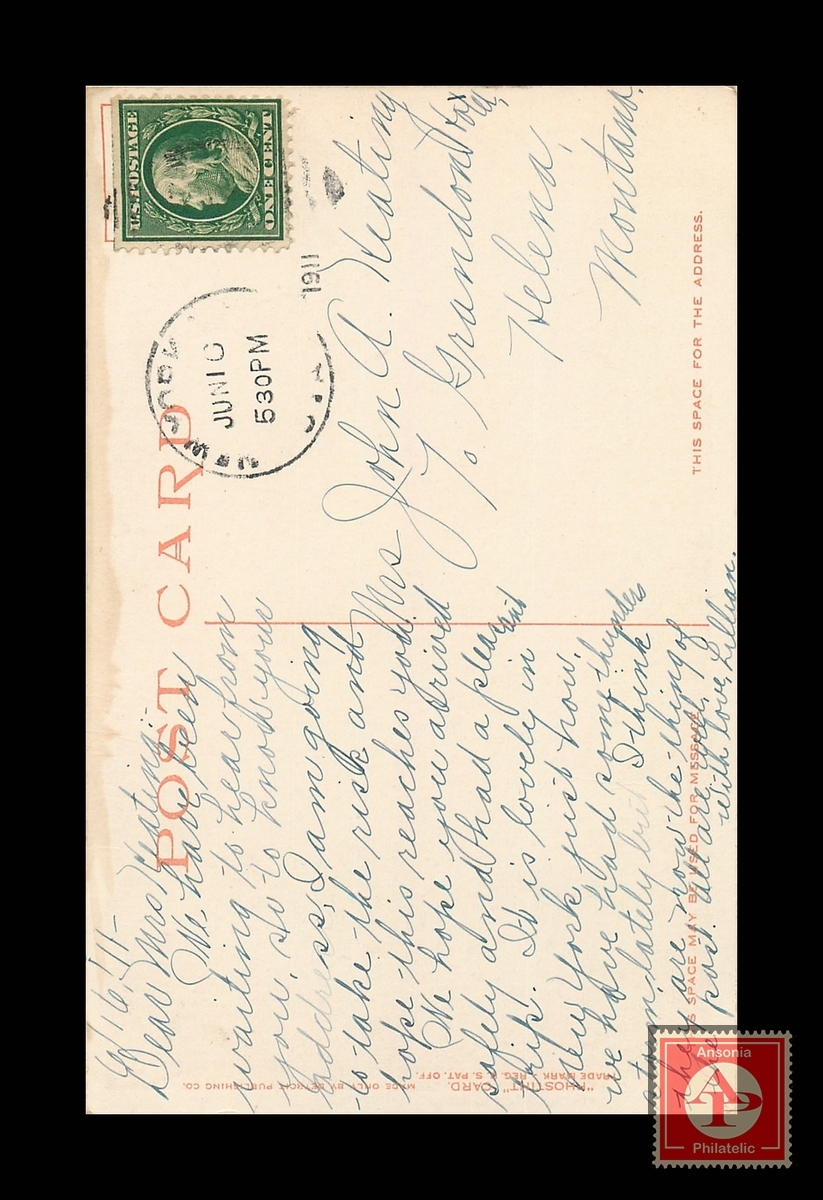 POST CARD
U.S. POSTAGE
ONE CENT
NEW YORK
JUN 16
530PM
1911
6/16/11-
Dear Mrs Keating:-
We have been
waiting to hear from
you, so to know your
address, I am going
to take the risk and
hope this reaches you.
We hope you arrived
safely and had a pleasant
trip. It is lovely in
New York just now,
we have had some thunder
lately but I think
they are now the thing of
the past. All are well,
with love, Lillian.
Mrs John A. Keating
% Grandon
Helena,
Montana.
THIS SPACE FOR THE ADDRESS.
THIS SPACE MAY BE USED FOR MESSAGE
"PHOSTINT" CARD.
MADE ONLY BY DETROIT PUBLISHING CO.
TRADE MARK - REG. U. S. PAT. OFF.
Ansonia
AP
Philatelic